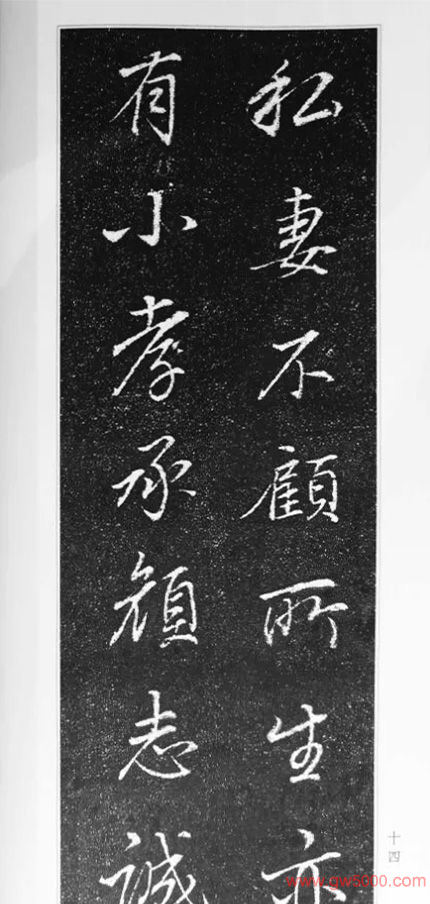 私妻不顧所生亦
有小孝承顏志誠
十四
www.gw5000.com